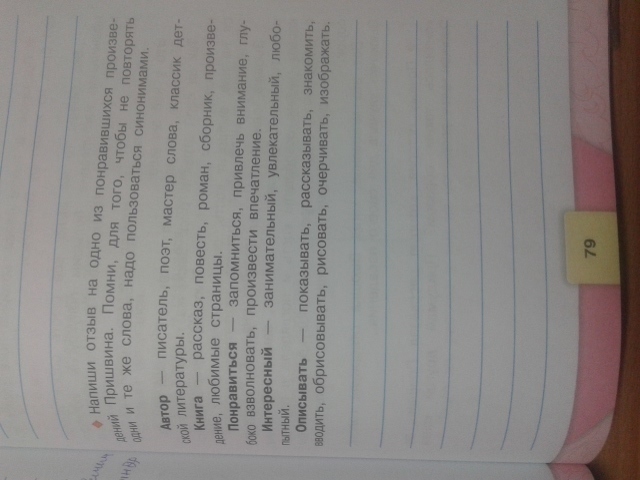 Напиши отзыв на одно из понравившихся произве-
дений Пришвина. Помни, для того, чтобы не повторять
одни и те же слова, надо пользоваться синонимами.
Автор — писатель, поэт, мастер слова, классик дет-
ской литературы.
Книга — рассказ, повесть, роман, сборник, произве-
дение, любимые страницы.
Понравиться — запомниться, привлечь внимание, глу-
боко взволновать, произвести впечатление.
Интересный — занимательный, увлекательный, любо-
пытный.
Описывать — показывать, рассказывать, знакомить,
вводить, обрисовывать, рисовать, очерчивать, изображать.
79